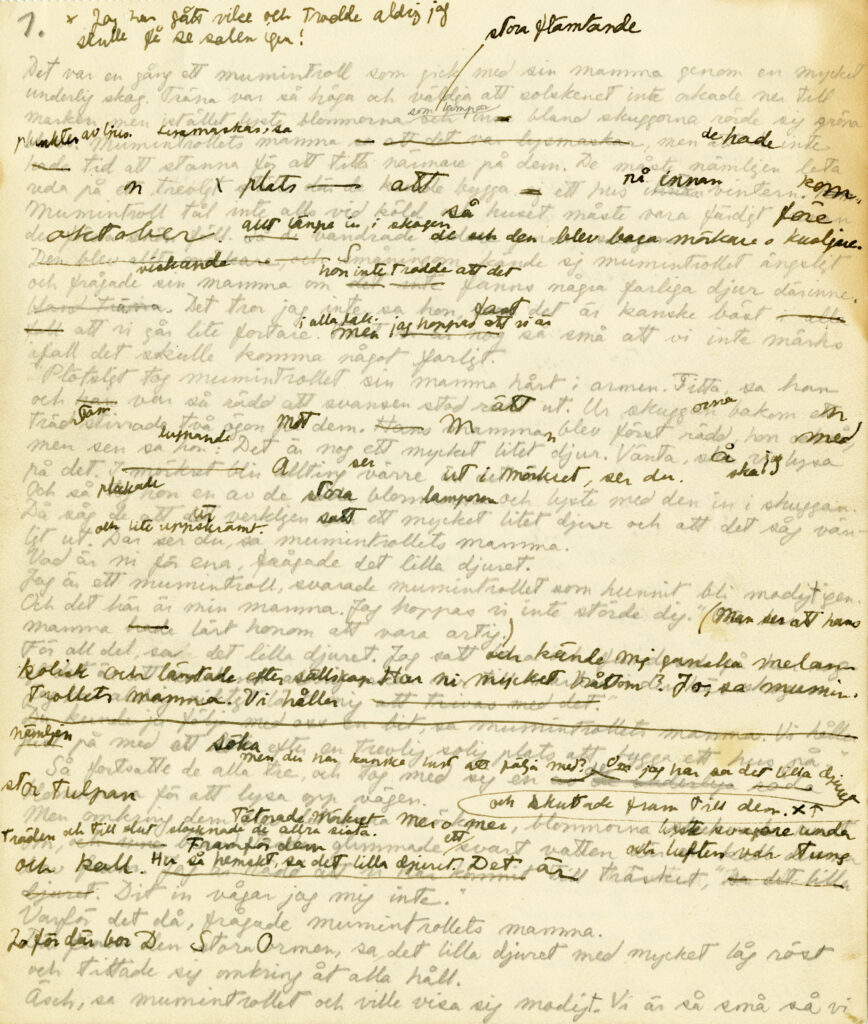 1.
x Jag har gått vilse och trodde aldrig jag
skulle få se solen igen!
stora flämtande
Det var en gång ett mumintroll som gick med sin mamma genom en mycket
underlig skog. Träna var så höga och väldiga att solskenet inte orkade ner till
som lampor
marken men istället lyste blommorna och bland skuggorna rörde sig gröna
punkter av ljus. Lysmaskar, sa
mumintrollets mamma att det var lysmaskar, men de hade inte
hade tid att stanna för att titta närmare på dem. De måste nämligen leta
reda på en trevligt x plats att bygga ett hus på innan vintern kom.
Mumintroll tål inte alls vid köld, så huset måste vara färdigt före
oktober. allt längre in i skogen
vandrade de och den blev bara mörkare o kusligare.
Den blev och Småningom kände sig mumintrollet ängsligt
viskande hon inte trodde att det
och frågade sin mamma om det inte fanns några farliga djur därinne.
bland träna. Det tror jag inte sa hon, fast det är kanske bäst
i alla fall. men jag hoppas att vi är
att vi går lite fortare. så små att vi inte märks
ifall det skulle komma något farligt.
Plötsligt tog mumintrollet sin mamma hårt i armen. Titta, sa han
och var så rädd att svansen stod rätt ut. Ur skuggorna bakom en
träd stirrade två ögon mot dem. Mamman blev först rädd hon med
lugnande
men sen sa hon: Det är nog ett mycket litet djur. Vänta, så ska jag lysa
på det. Allting ser värre ut i mörkret, ser du.
Och så plockade hon en av de stora blomlamporna och lyste med den in i skuggan.
Då såg de att det verkligen satt ett mycket litet djur och att det såg vän-
ligt ut och lite uppskrämt. Där ser du, sa mumintrollets mamma.
Vad är ni för ena, frågade det lilla djuret.
Jag är ett mumintroll, svarade mumintrollet som hunnit bli modigt igen.
Och det här är min mamma. Jag hoppas vi inte störde dig." (Man ser att hans
mamma hade lärt honom att vara artig.)
För all del, sa det lilla djuret. Jag satt och kände mig ganska melan-
kolisk och längtade efter sällskap. Har ni mycket bråttom? Jo, sa mumin-
trollets mamma. Vi håller att trivas med det."
med oss en bit, sa mumintrollets mamma. Vi håll
nämligen på med att söka efter en trevlig, solig plats att bygga ett hus på."
men du har kanske lust att följa med? Om jag har sa det lilla djuret
Så fortsatte de alla tre, och tog med sig en
stor tulpan för att lysa opp vägen.
och skuttade fram till dem. x ↑
Men omkring dem tätnade mörkret mer o mer, blommorna lyste svagare under
träden och till slut slocknade de allra sista.
Framför dem glimmade ett svart vatten och luften var tung
och kall. Hu så hemskt, sa det lilla djuret. Det är träsket," sa det lilla
djuret. Dit in vågar jag mig inte."
Varför det då, frågade mumintrollets mamma.
Jo för där bor Den Stora Ormen, sa det lilla djuret med mycket låg röst
och tittade sig omkring åt alla håll.
Äsch, sa mumintrollet och ville visa sig modigt. Vi är så små så vi